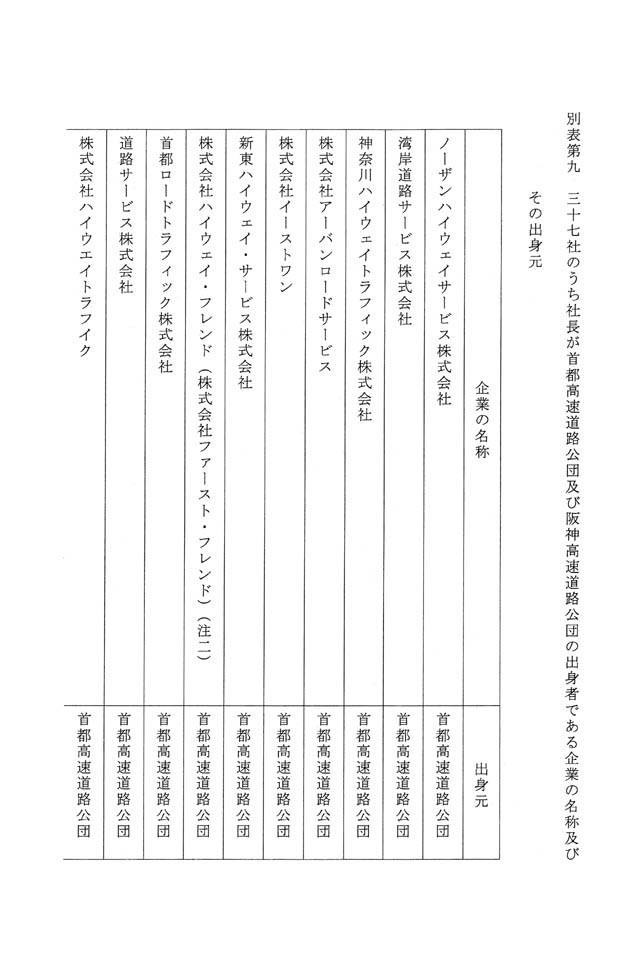 別表第九　三十七社のうち社長が首都高速道路公団及び阪神高速道路公団の出身者である企業の名称及び
その出身元
企業の名称　出身元
ノーザンハイウェイサービス株式会社　首都高速道路公団
湾岸道路サービス株式会社　首都高速道路公団
神奈川ハイウェイトラフィック株式会社　首都高速道路公団
株式会社アーバンロードサービス　首都高速道路公団
株式会社イーストワン　首都高速道路公団
新東ハイウェイ・サービス株式会社　首都高速道路公団
株式会社ハイウェイ・フレンド（株式会社ファースト・フレンド）（注二）　首都高速道路公団
首都ロードトラフィック株式会社　首都高速道路公団
道路サービス株式会社　首都高速道路公団
株式会社ハイウエイトラフイク　首都高速道路公団